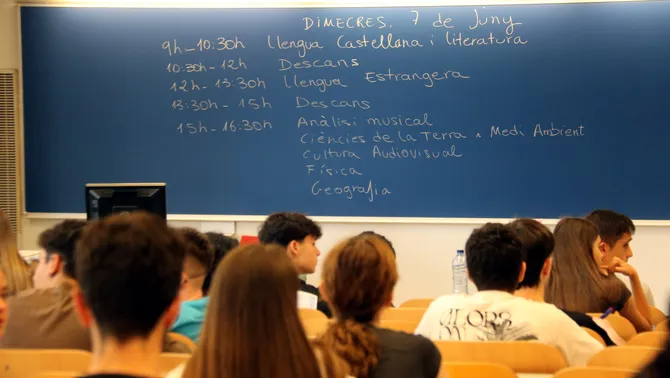 DIMECRES, 7 de Juny
9h-10:30h Llengua Castellana i literatura
10:30h-12h Descans
12h-13:30h Llengua Estrangera
13:30h-15h Descans
15h-16:30h Anàlisi musical
Ciències de la Terra i Medi Ambient
Cultura Audiovisual
Física
Geografia